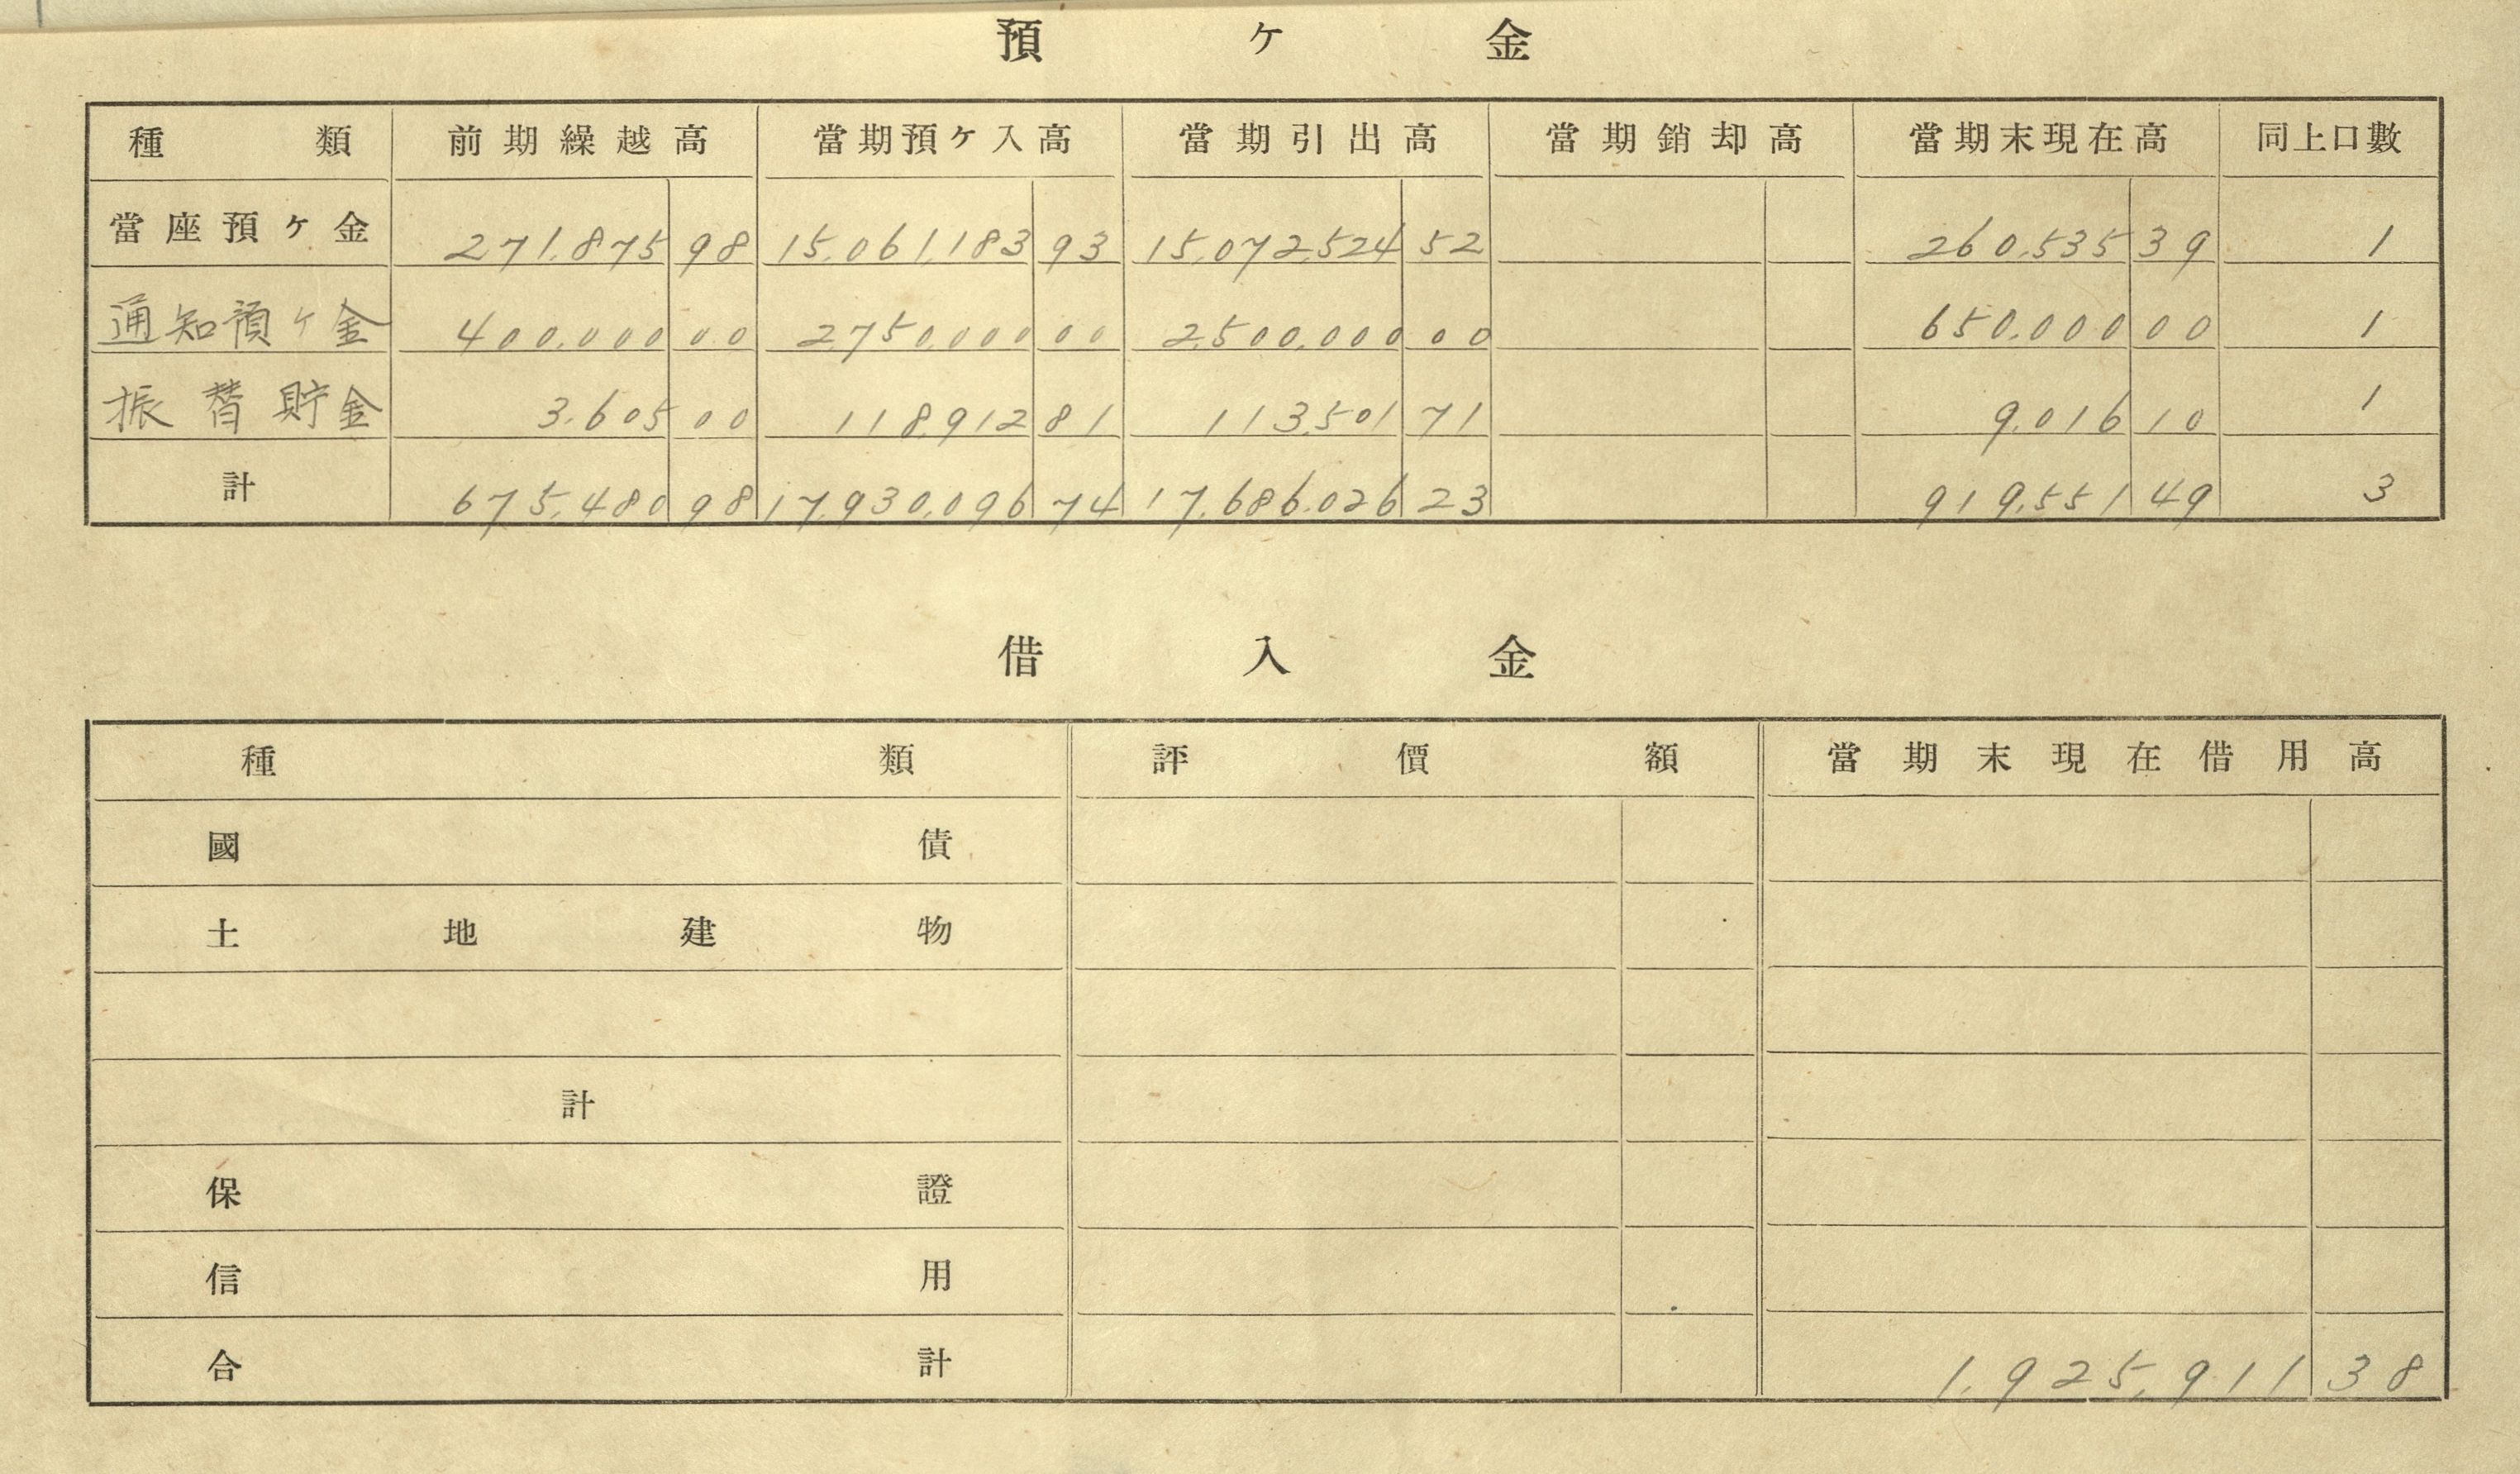 預ケ金
種類 前期繰越高 當期預ケ入高 當期引出高 當期銷却高 當期末現在高 同上口數
當座預ケ金 271,875 98 15,061,183 93 15,072,524 52 260,535 39 1
通知預ケ金 400,000 00 2,750,000 00 2,500,000 00 650,000 00 1
振替貯金 3,605 00 118,912 81 113,501 71 9,016 10 1
計 675,480 98 17,930,096 74 17,686,026 23 919,551 49 3
借入金
種類 評價額 當期末現在借用高
國債
土地建物
計
保證
信用
合計 1,925,911 38